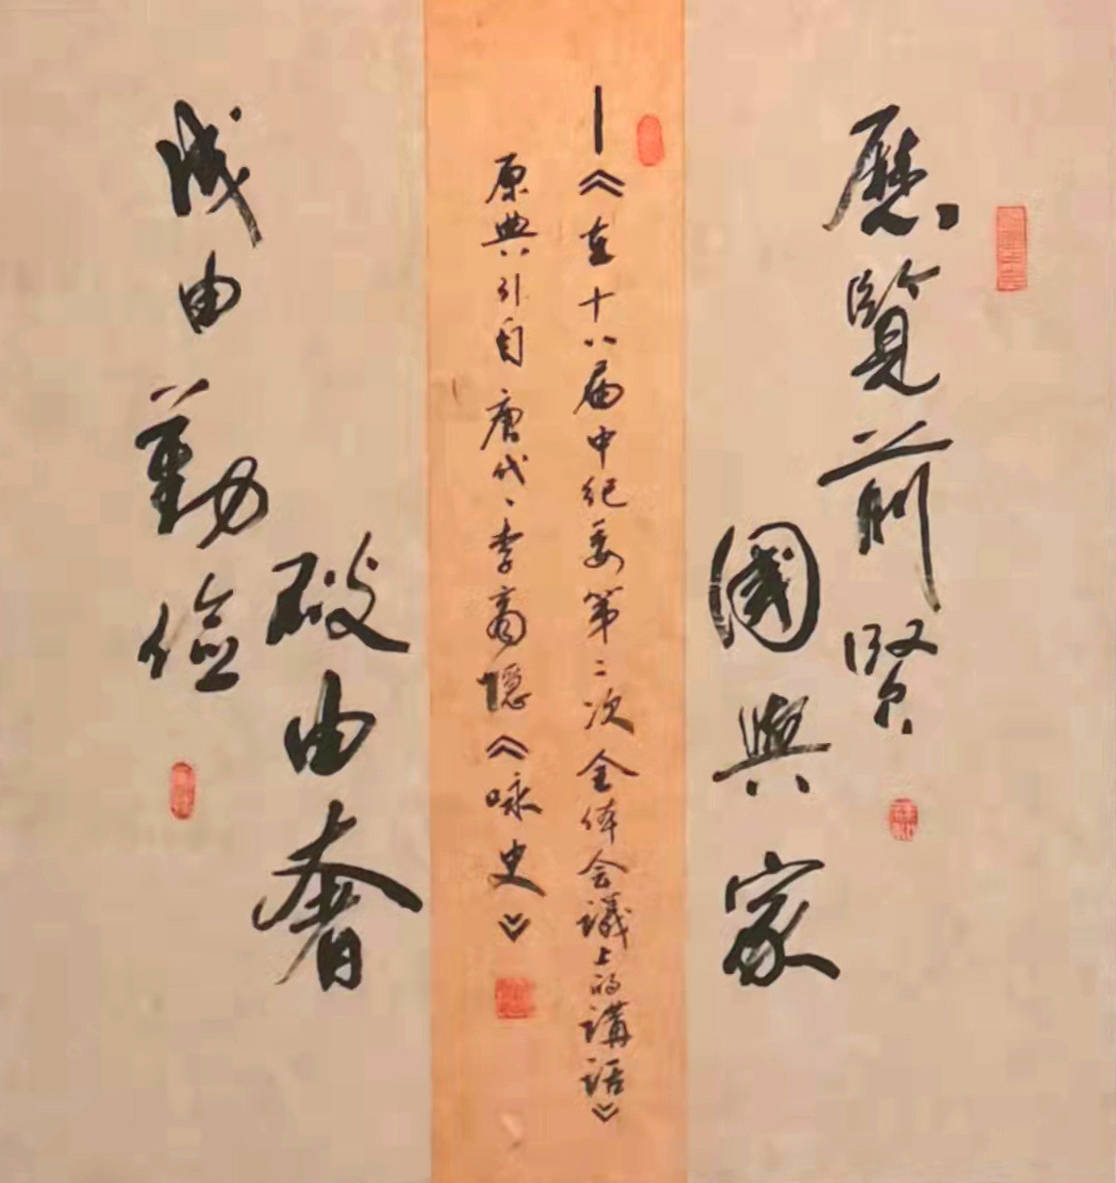 歷覽前賢
國與家
成由勤儉
破由奢
—《在十八届中纪委第二次全体会議上的講話》
原典引自唐代、李商隱《咏史》